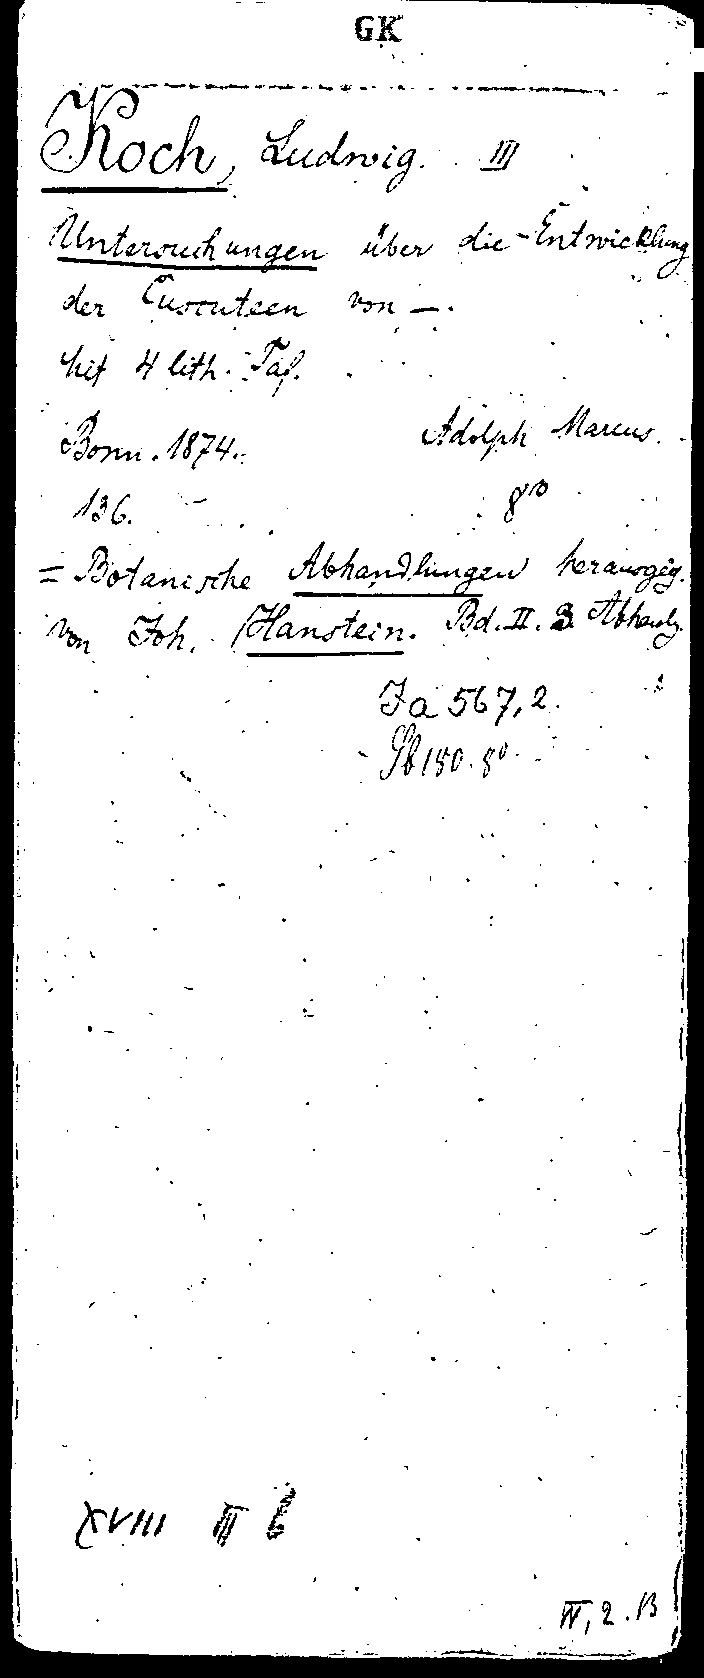 GK
Koch, Ludwig. III
Untersuchungen über die Entwicklung
der Cuscuteen von —.
Mit 4 lith. Taf.
Bonn. 1874. Adolph Marcus.
136. 8°
= Botanische Abhandlungen herausgeg.
von Joh. Hanstein. Bd. II. 3 Abhandlg.
Ja 567,2.
Sb 180. 8°
XVIII III b
IV, 2. B